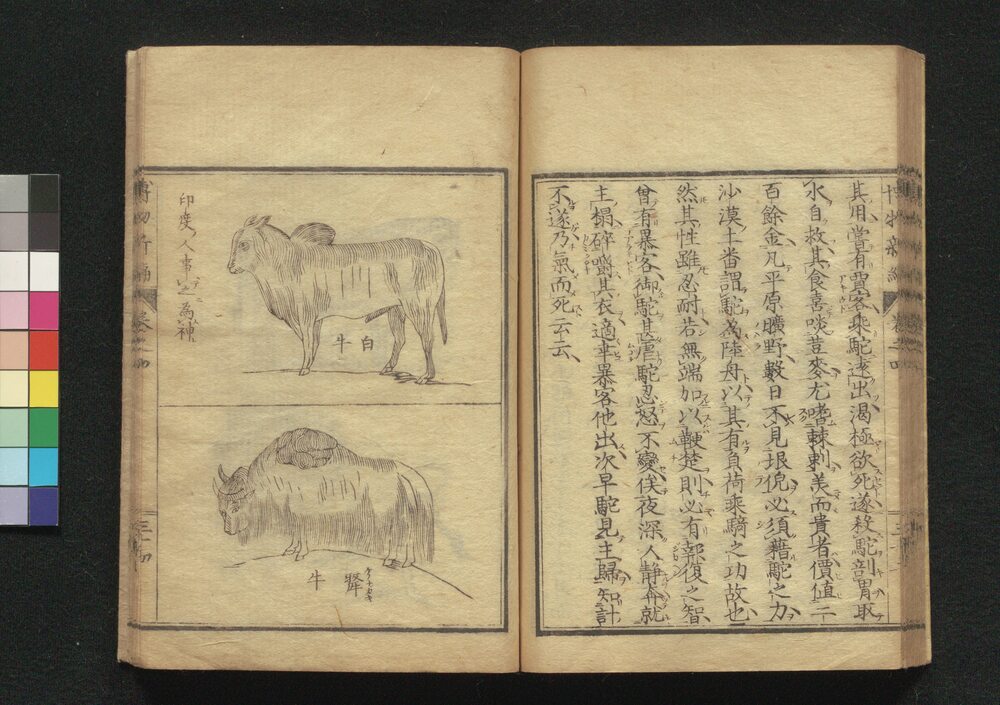 其用嘗有賈客乘駝遠出渴極欲死遂殺駝剖胃取
水自救其食喜啖荳麥尤嗜棘刺美而貴者價值二
百餘金凡平原曠野數日不見垠倪必須藉駝之力
沙漠土番謂駝為陸舟以其有負荷乘騎之功故也
然其性雖忍耐苦無端加以鞭楚則必有報復之智
曾有暴客御駝甚虐駝忍怒不變俟夜深人靜奔就
主榻碎嚼其衣適幸暴客他出次早駝見主歸知計
不遂乃氣而死云云
印度人事之為神
白牛
犛牛